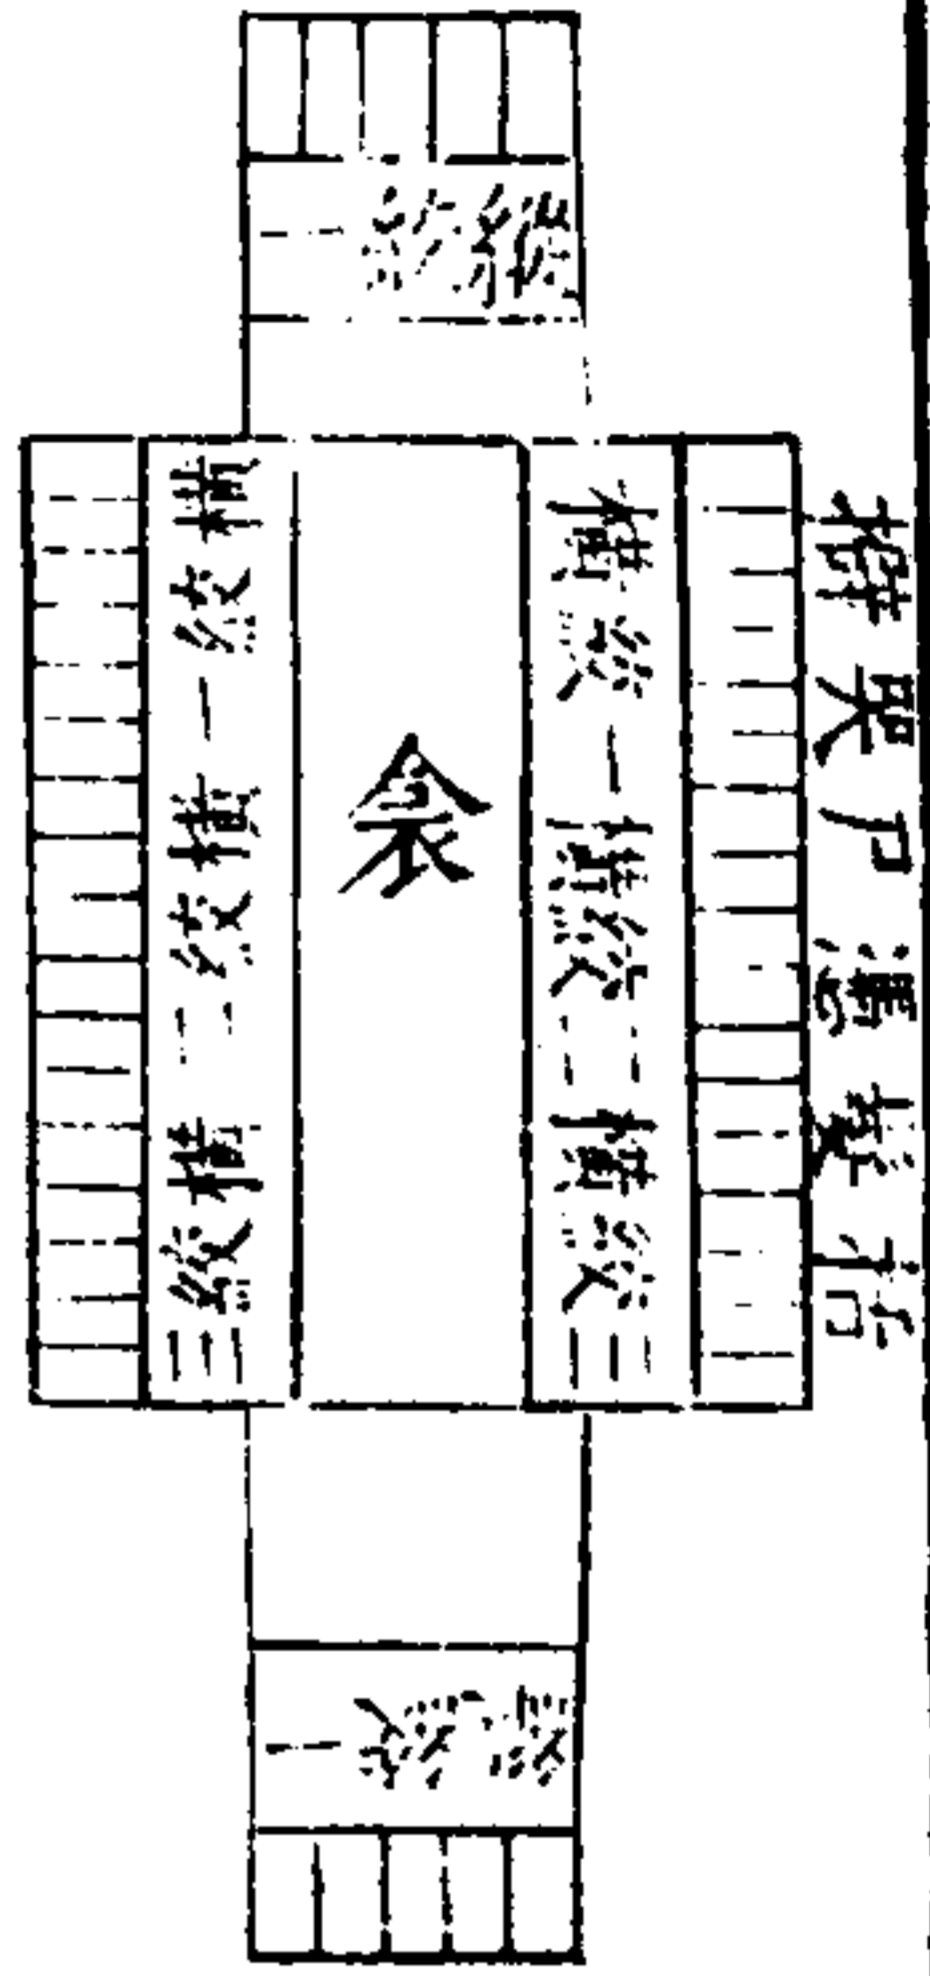 擗哭尸憑凳衿
縱絞一
橫絞一橫絞二橫絞三
衾
橫絞一橫絞二橫絞三
縱絞一